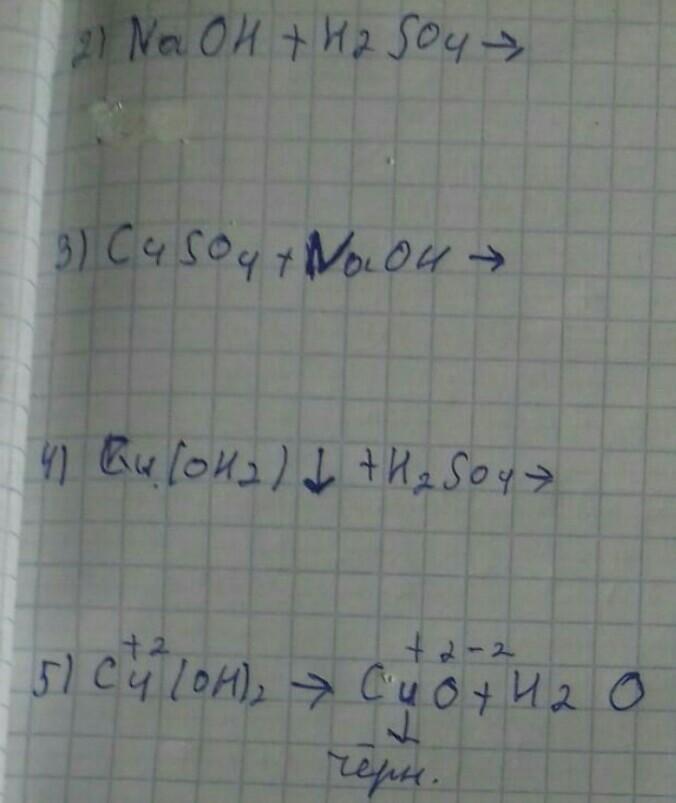 2) NaOH + H2SO4 →
3) CuSO4 + NaOH →
4) Cu(OH2)↓ + H2SO4 →
+2 +2 -2
5) Cu(OH)2 → CuO + H2O
↓
черн.